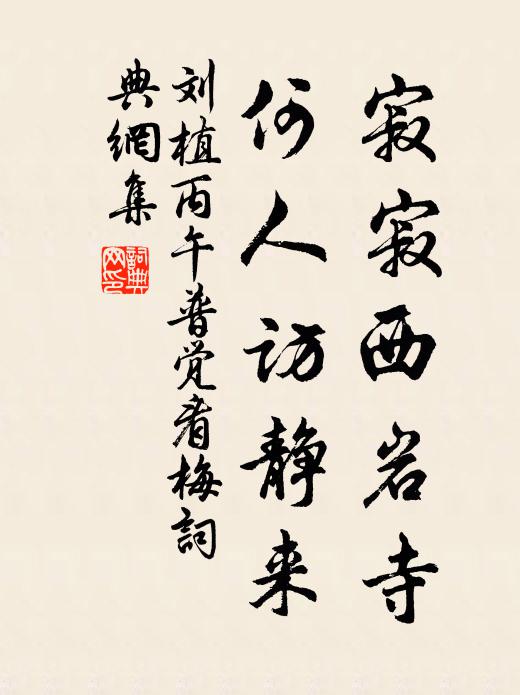 寂寂西岩寺
何人访静来
刘植丙午普觉看梅詞
典網集
詞典
网印